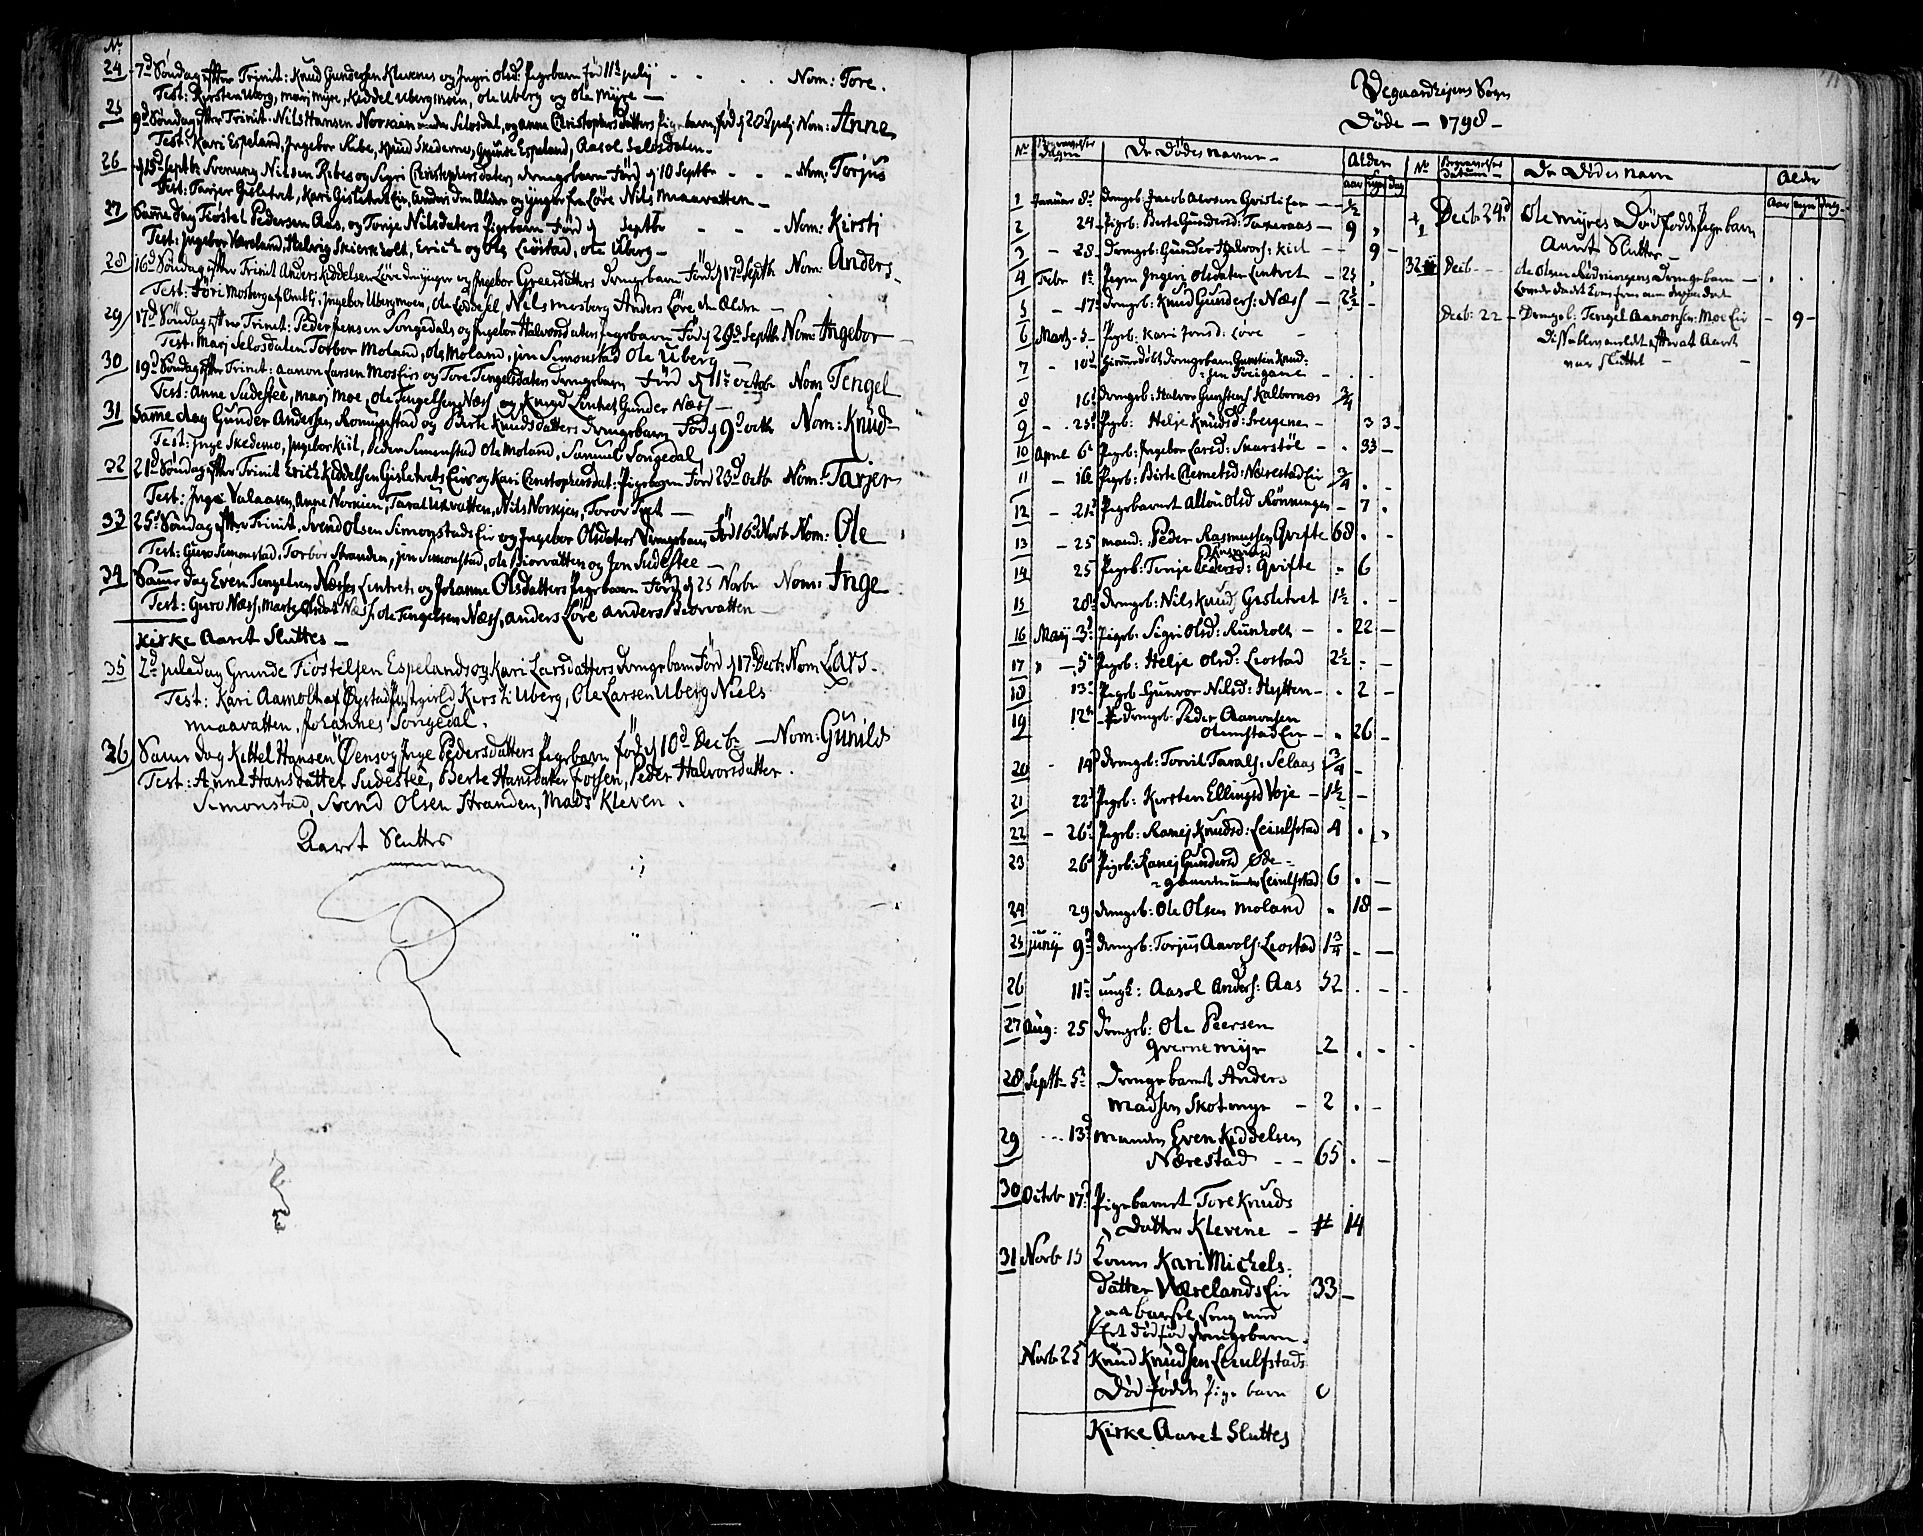 No
24 7d Søndag efter Trinit: Knud Gundersen Klevenes og Ingri Olsd: Pigebarn Fød 11t julij - - - - Nom: Tore.
Test: Kirsten Uberg, Marj Myre, Kiddel Ubergmoen, Ole Uberg og Ole Myre —
25 9d Søndag efter Trinit: Nils Hansen Norkien under Selosdal, og Anne Christophersdatters Pigebarn, fød d 20d julj Nom: Anne
Test: Kari Espeland, Ingebor Skibe, Knud Skedemo, Espeland, Aasol Selosdalen.
26 d 15d Septb: Svenung Nilsen Ribes og Sigri Christophersdatters drengebarn Fød d 10 Septbr - - - Nom: Torjus
Test: Tarjer Gislstret, Kari Gislstret Eie, Anders den Ældre og yngre fra Løve Nils Maavatten —
27 Same dag Tiøstel Pedersen Aas, og Tonje Nilsdatters Pigebarn Fød d Septbr - - - Nom: Kirsti
Test: Ingebor Væreland, Helvig Skierkholt, Erich og Ole Liøstad, Ole Uberg —
28 16d Søndag efter Trinit Anders Kiddelsen Løve den yngre og Ingebor Greersdatters drengebarn Fød d 17d Septb Nom: Anders
Test: Jøri Mosberg af Omblj, Ingebor Ubergmoen, Ole Løddesel, Nils Mosberg Anders Løve den Ældre —
29 17d Søndag efter Trinit: Peder Jensen Songedals og Ingebor Halvorsdatters Pigebarn Fød d 29d Septb Nom: Ingebor
Test: Marj Selosdalen Torbor Moland, Ole Moland, Jon Simonstad Ole Uberg —
30 19d Søndag efter Trinit: Aanon Larsen Moe Eies og Tore Tengelsdatters drengebarn Fød d 11te octob Nom Tengel
Test: Anne Sudestee, Marj Moe, Ole Tengelsen Næss og Knud Lintret Gunder Næss —
31 Samme dag Gunder Andersen Ronningstad og Berte Knudsdatters drengebarn Fød d 9d octb Nom: Knud
Test: Inge Skedemo, Ingebor Kiil, Peder Simonstad Ole Moland, Samuel Songedal
32 21d Søndag efter Trinit Erich Kiddelsen Gislstrets Eies og Kari Christophersdat: Pigebarn Fød 23d octb Nom: Tarjer
Test: Ingri Valaasen, Anne Norkien, Taral Uxvatten, Nils Norkien, Toror Tvet —
33 25d Søndag efter Trinit, Svend Olsen Simonstads Eie og Ingebor Olsdatters Drengebarn Fød 16d Novb Nom: Ole
Test: Guro Simonstad, Torbor Stranden, Jon Simonstad, Ole Biorvatten og Jon Sudestee —
34 Same dag Even Tengelsen Næsses Lintret og Johanne Olsdatters Pigebarn Fød d 25 Novbr Nom: Inge
Test: Guro Næss, Marte Olsdat: Næss, Ole Tengelsen Næss, Anders Løve Anders Biorvatten —
Kirke Aaret Sluttes —
35 2d juledag Grunde Tiostelsen Espelands og Kari Larsdatters drengebarn Fød d 17d Decb: Nom Lars.
Test: Kari Aamolt af Øystad Kirsti Uberg, Ole Larsen Uberg Niels
Maavatten, Johannes Songedal.
36 Same dag Kittel Hansen Øens og Inge Pedersdatters Pigebarn fød d 10d Decbr — Nom: Gunild
Test: Anne Hansdatter Sudestee, Berte Hansdatter Fossen, Peder Halvorsdatter.
Simonstad, Svend Olsen Stranden, Mads Kleven.
Aaret Sluttes
Vegaardheiens Sogn
Døde — 1798 —
No Begravelses Dagen De Dødes navne — Alder
aar ugr dag
1 Januar 8d drengeb: Jacob — ½
2 24 Pigeb: Berte Gundersd: Taxeraas — 9
3 — 28 drengeb: Gunder Halvors: Kiil — 9 —
4 Febr 1t Pigen Ingeri Olsdatter Lintret — 25
5 — 17d drengeb: Knud Gunders: Næss — 2½
6 Marts 3 Pigeb: Kari Jensd: Løve —
7 — 10d hiemmedøbt drengebarn Gunsten Knud-
sen Treigene —
8 16d drengeb: Halvor Gunstens Kalbornæs ¾
9 — 25d Pigeb: Helje Knudsd: Treigene — 3 3
10 April 6t Pigeb: Ingebor Larsd: Snarstöl — 33 —
11 — 16 Pigeb: Birte Clemetsd: Nærestad Eie ¾
12 — 21d Pigebarnet Allou Olsd Rönningen — 7
13 — 25 mand: Peder Rasmussen Qvifte 68
14 25 Pigeb: Tonje Rasmusd: Qvifte 6
15 28d drengeb: Nils Knuds Gislstret 1½
16 Maij 3d Pigeb: Sigri Olsd: Runholt — 22 —
17 — 5t Pigeb: Helje Olsd: Liostad 2½
18 13d Pigeb Gunvor Nilsd: Heften — 2 —
19 12te drengeb: Peder Aanonsen
Olimstad Eie — 26 —
20 14d drengeb: Torvil Tarals: Selaas ¾
21 22d Pigeb: Kirsten Ellingsd Voje — 1½
22 — 26d Pigeb: Ranej Knudsd: Leiulfstad 4
23 26d Pigeb: Ranej Gundersd Øde-
gaarden under Leiulfstad 6
24 29 drengeb: Ole Olsen Moland 18
25 Junij 9d drengeb: Torjus Aavols: Liostad 1¾
26 11te ungk: Aasol Anders: Aas 52
27 Aug: 25 drengeb: Ole Peersen
Qvernemyr 2
28 Septb 5t drengebarnet Anders
Madsen Skotmyr — 2
29 — 13d manden Even Kiddelsen
Nærestad — 65
30 Octob 17d Pigebarnet Tore Knuds
datter Klevene — 14
31 Novb 15 Konen Kari Michels:
datter Værelands Eie 33
paa barsel seng med
Et dødfød drengebarn.
Novb 25 Knud Knudsen Leiulfstads
Død fødde Pige barn 0
Kirke Aaret Sluttes
No Begravelses Datum De Dødes navn Alder
Aar ugr dag
Decb 24d Ole Myres Dødfødde Pigebarn
Aaret Slutter —
32 Decb — Ole Olsen Rødningens Drengebarn —
Decb: 22 — Drengeb: Tengel Aanonsen Moe Eie — 9 —
Disse blev meldt efter at Aaret
var Sluttet —